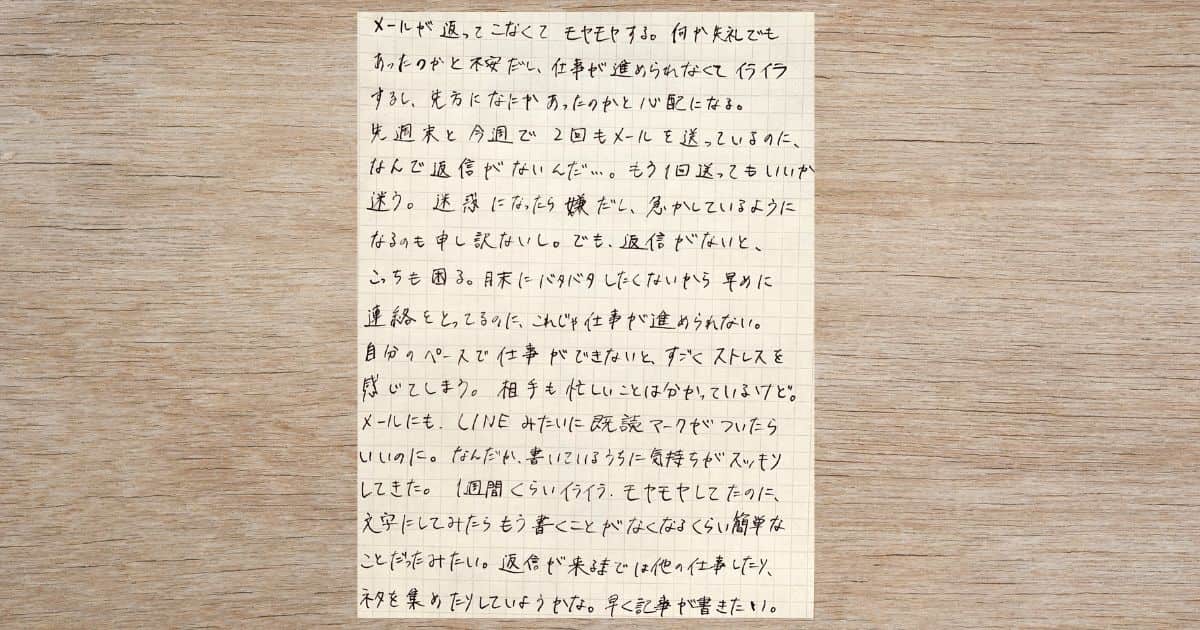 メールが返ってこなくてモヤモヤする。何か失礼でも
あったのかと不安だし、仕事が進められなくてイライラ
するし、先方になにかあったのかと心配になる。
先週末と今週で2回もメールを送っているのに、
なんで返信がないんだ…。もう1回送ってもいいか
迷う。迷惑になったら嫌だし、急かしているように
なるのも申し訳ないし。でも、返信がないと、
こっちも困る。月末にバタバタしたくないから早めに
連絡をとってるのに、これじゃ仕事が進められない。
自分のペースで仕事ができないと、すごくストレスを
感じてしまう。相手も忙しいことは分かっているけど。
メールにも、LINEみたいに既読マークがついたら
いいのに。なんだか、書いているうちに気持ちがスッキリ
してきた。1週間くらいイライラ、モヤモヤしてたのに、
文字にしてみたらもう書くことがなくなるくらい簡単な
ことだったみたい。返信が来るまでは他の仕事したり、
ネタを集めたりしていようかな。早く記事が書きたい。